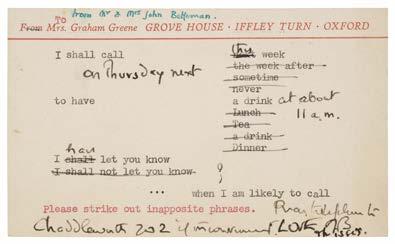 from Mr & Mrs John Betjeman.
TO
From Mrs. Graham Greene GROVE HOUSE · IFFLEY TURN · OXFORD
I shall call this week
on Thursday next the week after
sometime
never
to have a drink at about
Lunch 11 a.m.
Tea
a drink
Dinner
have
I shall let you know
I shall not let you know
... when I am likely to call
Please strike out inapposite phrases.
Chaddleworth 202 if inconvenient. LOVE